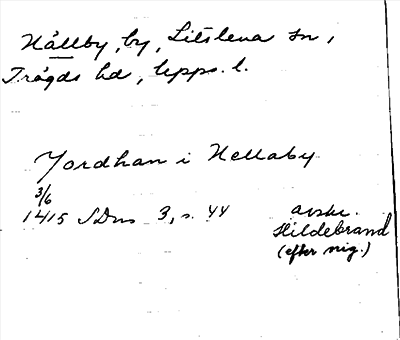 Hållby, by, Litslena sn,
Trögds hd, Upps. l.
Jordhan i Hellaby
3/6
1415 SDns 3, s. 44
avskr.
Hildebrand
(efter orig.)